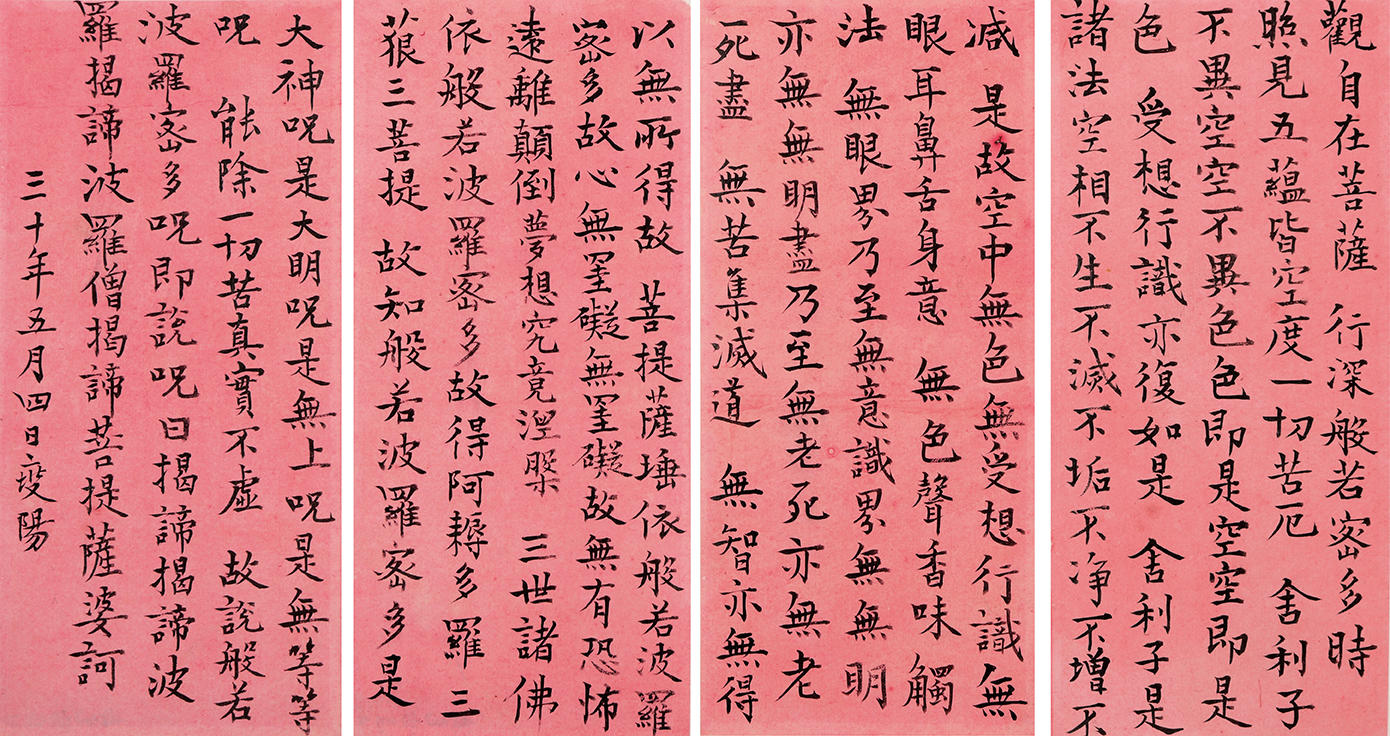 觀自在菩薩 行深般若密多時
照見五蘊皆空度一切苦厄 舍利子
不異空空不異色色即是空空即是
色 受想行識亦復如是 舍利子是
諸法空相不生不滅不垢不净不增不
减 是故空中無色無受想行識無
眼耳鼻舌身意 無色聲香味觸
法 無眼界乃至無意識界無無明
亦無無明盡乃至無老死亦無老
死盡 無苦集滅道 無智亦無得
以無所得故 菩提薩埵依般若波羅
密多故心無罣礙無罣礙故無有恐怖
遠離顛倒夢想究竟涅槃 三世諸佛
依般若波羅密多故得阿耨多羅三
藐三菩提 故知般若波羅密多是
大神呪是大明呪是無上呪是無等等
呪 能除一切苦真實不虛 故說般若
波羅密多呪即說呪曰揭諦揭諦波
羅揭諦波羅僧揭諦菩提薩婆訶
三十年五月四日陽